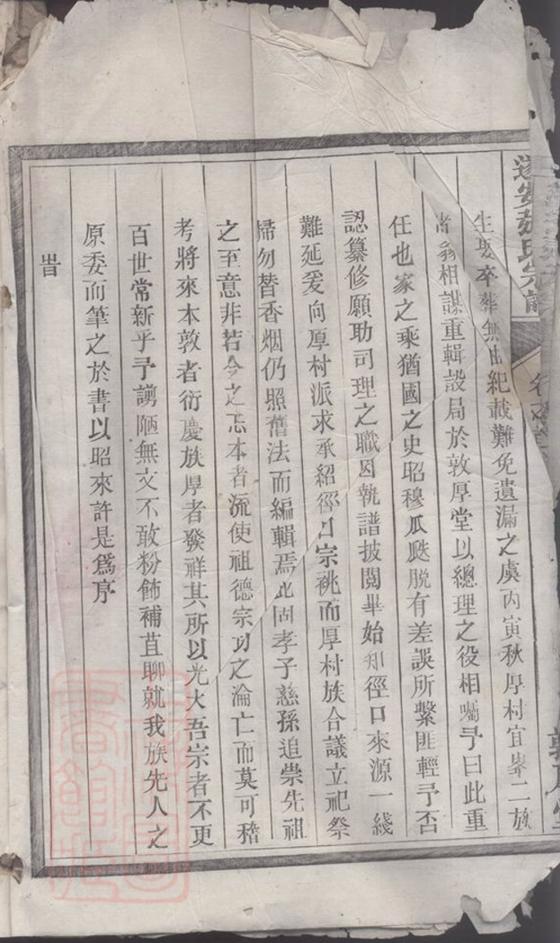 遂安 氏宗譜
生娶卒葬無由紀載難免遺漏之虞丙寅秋厚村宜峯二族
翁相謀重輯設局於敦厚堂以總理之役相囑予曰此重
任也家之乘猶國之史昭穆瓜瓞脱有差誤所繫匪輕予否
認纂修願助司理之職因執譜披閱畢始知徑口來源一綫
難延爰向厚村派求承紹徑口宗祧而厚村族合議立祀祭
掃勿替香烟仍照舊法而編輯焉此固孝子慈孫追崇先祖
之至意非若今之忘本者流使祖德宗功之淪亡而莫可稽
考將來本敦者衍慶族厚者發祥其所以光大吾宗者不更
百世常新乎予謭陋無文不敢粉飾補苴聊就我族先人之
原委而筆之於書以昭來許是爲序
旹